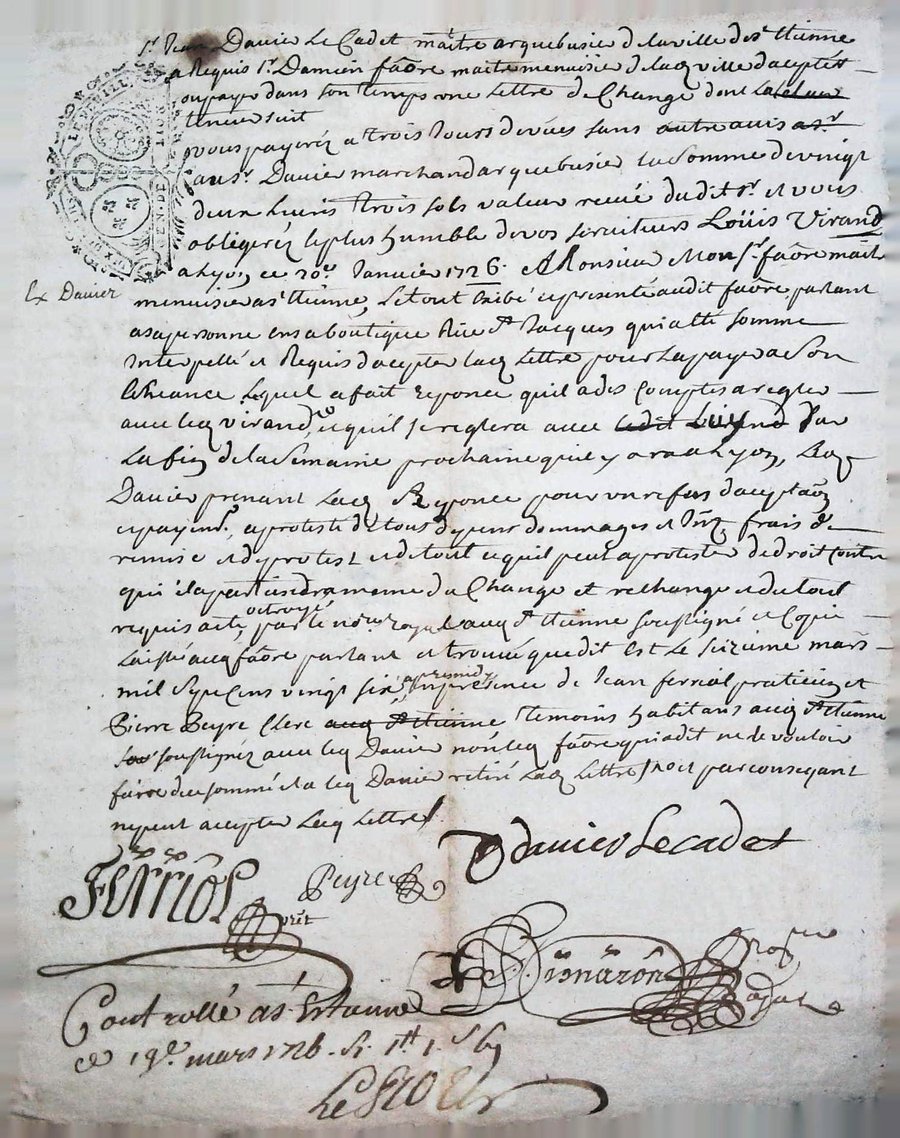 Sr. Jean Davier Le Cadet maitre arquebusier de la ville de st. Etienne
a Requis Sr. Damien favre maitre menuisier de lad. ville daccepter
ou payer dans son temps une Lettre de Change dont
teneur suit
vous payeréz a trois Jours de vüe sans autre avis
au sr. Davier marchand arquebusier la Somme de vingt
deux Livres trois sols valeur receüe dudit sr. et vous
obligeréz le plus humble de vos serviteurs Loüis Virand
a Lyon ce 20e. Janvier 1726. A Monsieur Monsr. favre maitre
Ex Davier
menuisier a st. Etienne, Le tout exibé et presenté audit favre parlant
a sa personne en sa boutique Rüe st. Jacques qui a été sommé
Interpellé et Requis daccepter lad. Lettre pour La payer a Son
Echeance Lequel a fait Reponce quil a des Comptes a regler
avec led. virand, et quil se reglera avec Luy dans
La fin de la Semaine prochaine quil y ira a Lyon, Led.
Davier prenant Lad. Reponce pour un refus
et payemt. a protesté de tous depens dommages et Int. frais de
remise et de protest et de tout ce quil peut a protester de droit contre
qui il apartiendra mesme de Change et rechange et du tout
requis acte, octroyé par le nore. royal aud. st. Etienne soussigné et Copie
Laissé aud. favre parlant et trouvé que dit est Le seizieme mars
mil sept cens vingt six apres midy en presence de Jean ferriol praticien et
Pierre Peyre Clerc aud. st. Etienne temoins habitans aud. st. Etienne
soussignez avec led. Davier non led. favre qui a dit ne le vouloir
faire de ce sommé et a led. Davier retiré Lad. Lettre
ny peut accepter Lad. Lettre
Davier Le cadet
Ferriol
Peyre
Controllé a st. Estienne
Ce 19e. mars 1726.